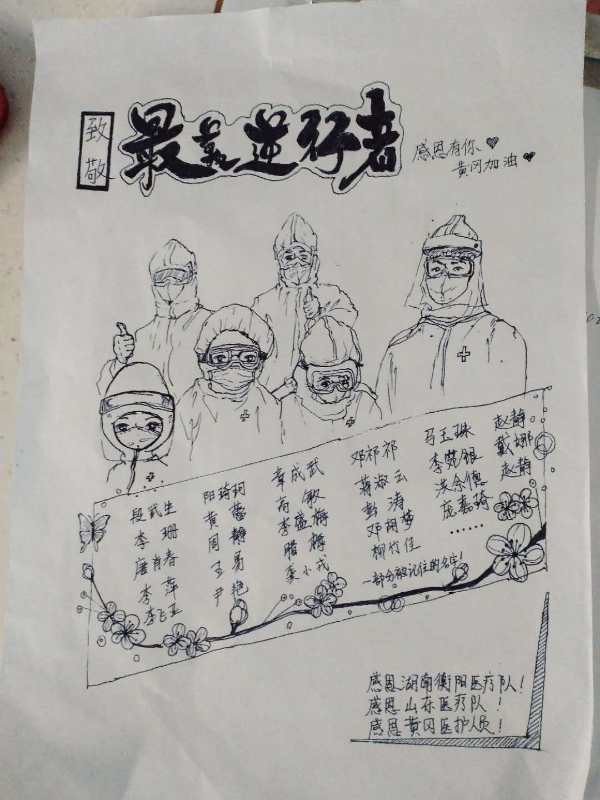 致敬
最美逆行者
感恩有你
黄冈加油
段武生
李 珊
唐肖春
李 萍
李飞亚
阳琦钶
黄 蕾
周 静
王 勇
尹 艳
章成武
李盛梅
腊 梅
邓祁祁
蒋海云
彭 涛
邓翔梦
柳竹佳
马玉珠
李宛银
洪余德
庞嘉琦
……
赵静
戴娜
赵静
一部分被记住的名字!
感恩湖南衡阳医疗队!
感恩山东医疗队!
感恩黄冈医护人员!